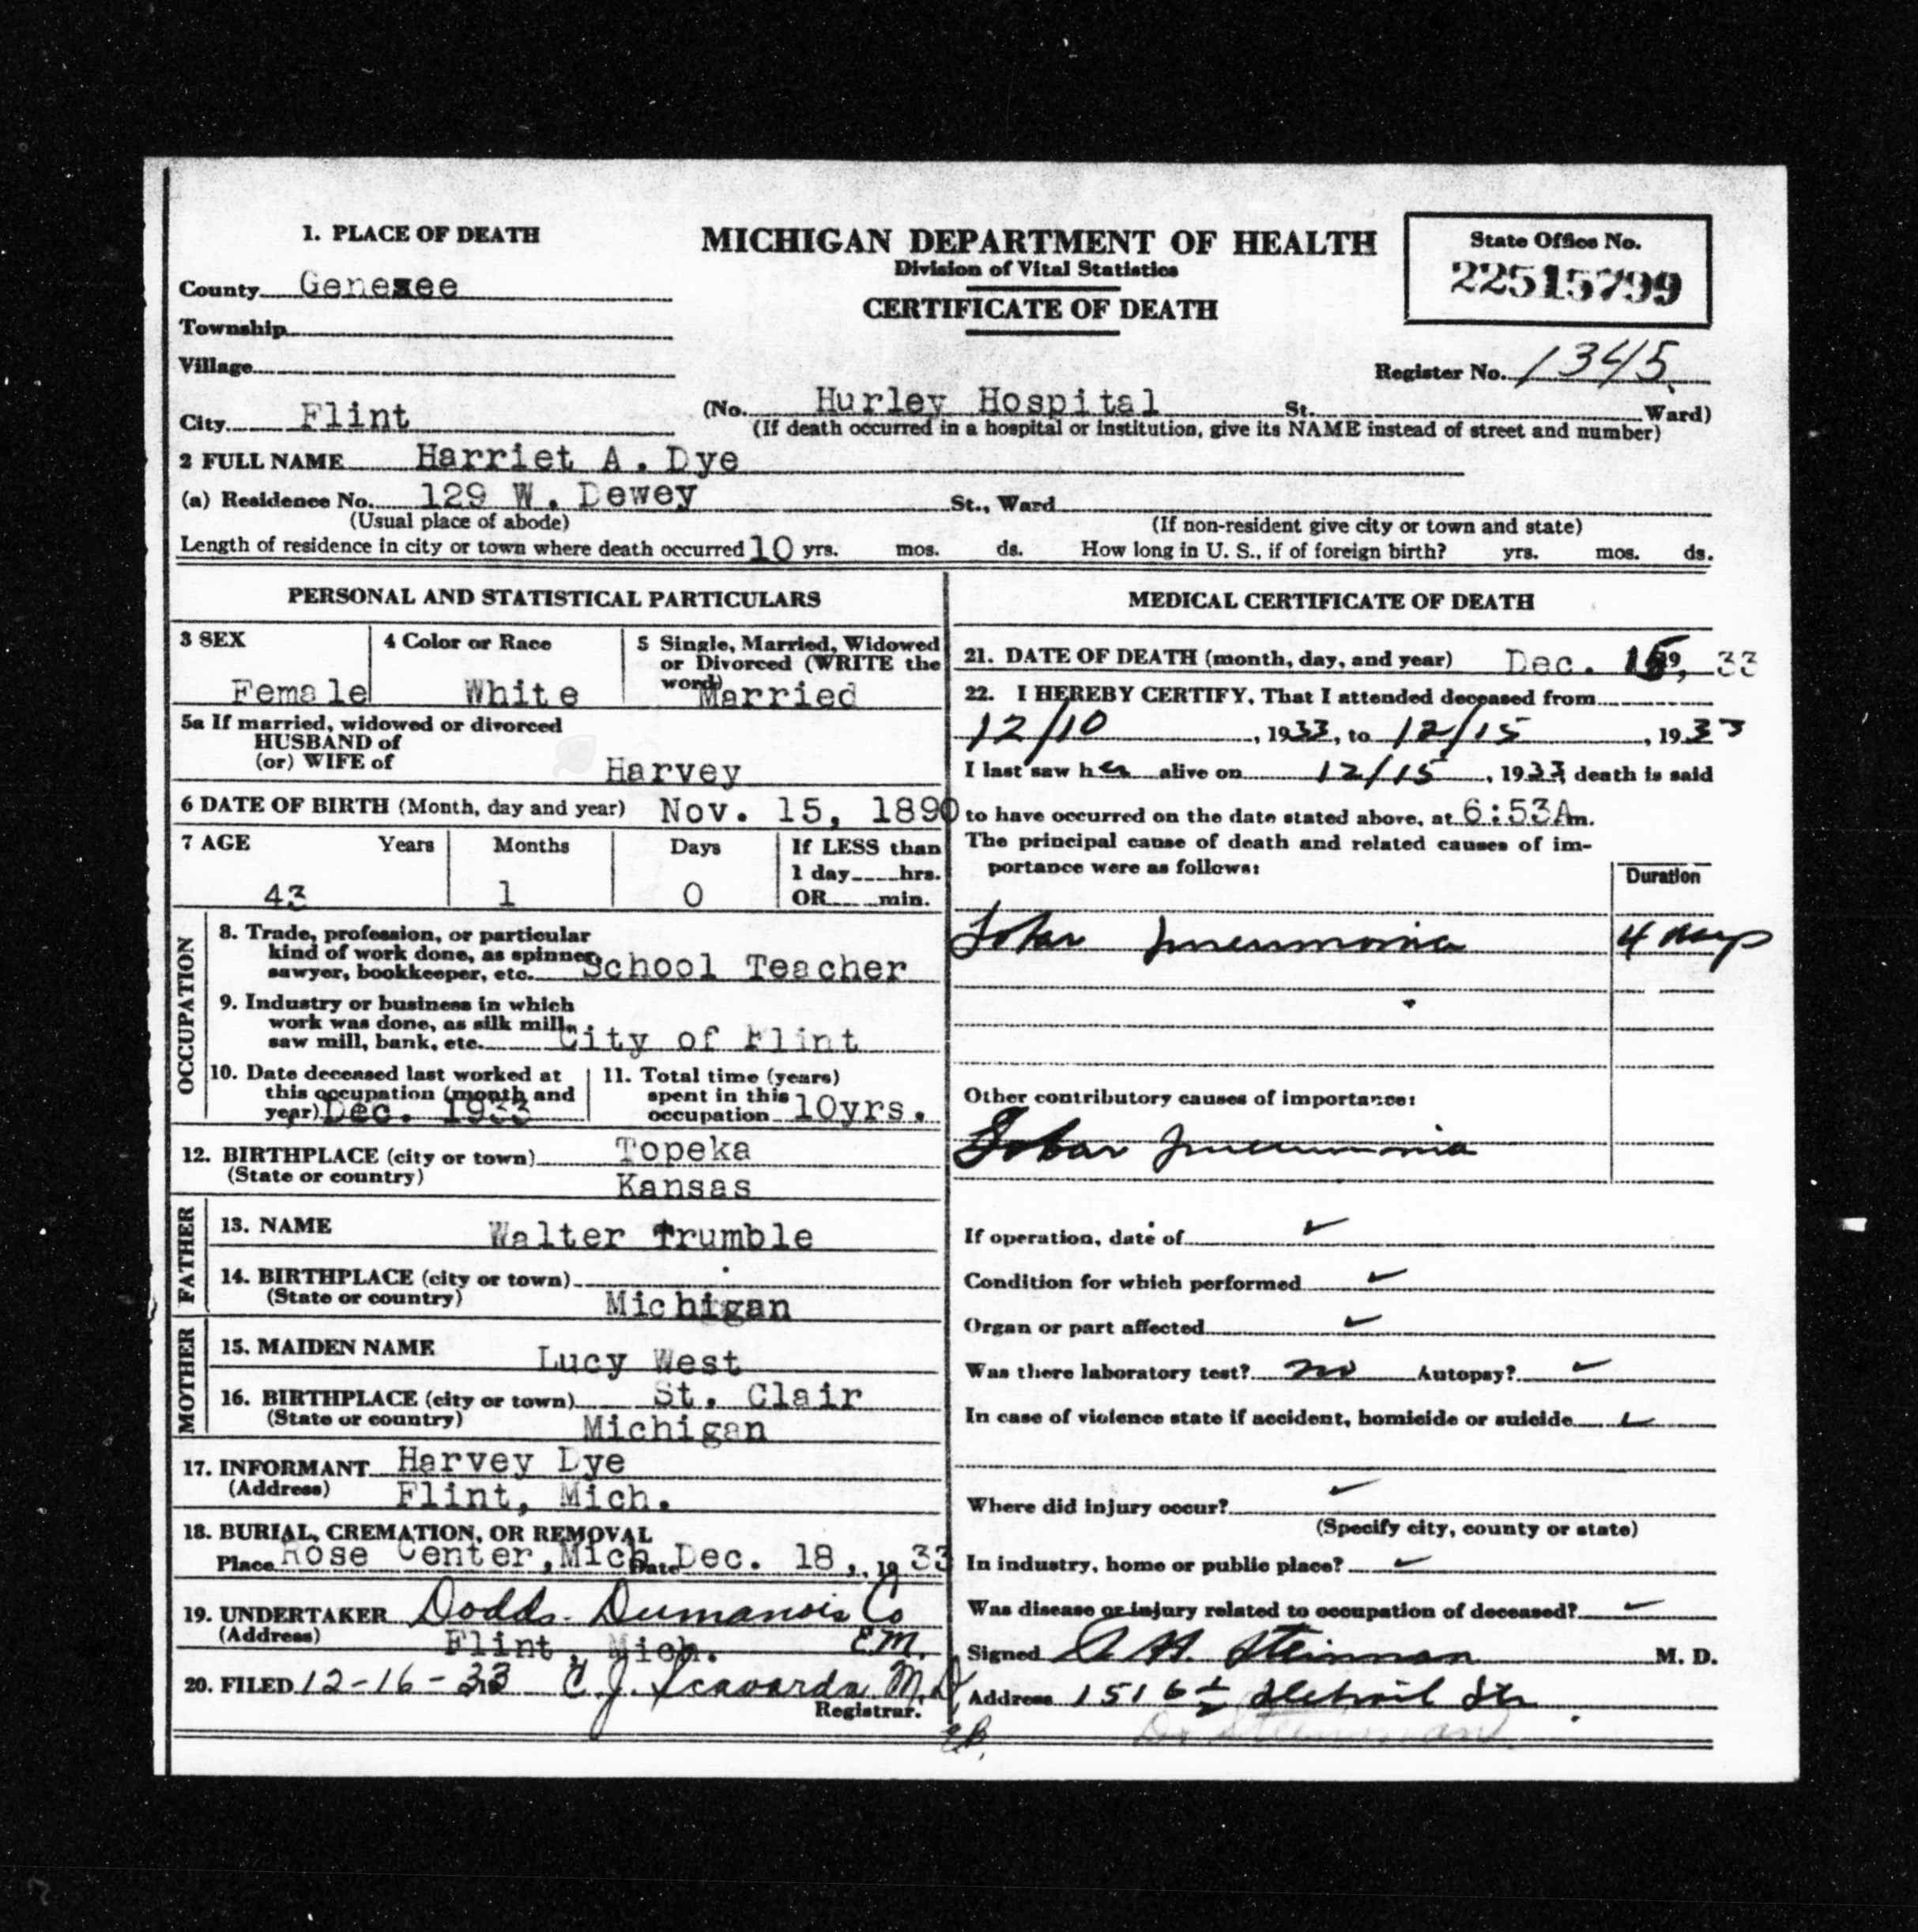 1. PLACE OF DEATH
MICHIGAN DEPARTMENT OF HEALTH
Division of Vital Statistics
CERTIFICATE OF DEATH
State Office No.
22515799
County Genesee
Township
Village
Register No. 1345
City Flint
(No. Hurley Hospital St. Ward)
(If death occurred in a hospital or institution, give its NAME instead of street and number)
2 FULL NAME Harriet A. Dye
(a) Residence No. 129 W. Dewey St., Ward
(Usual place of abode) (If non-resident give city or town and state)
Length of residence in city or town where death occurred 10 yrs. mos. ds. How long in U. S., if of foreign birth? yrs. mos. ds.
PERSONAL AND STATISTICAL PARTICULARS
3 SEX
Female
4 Color or Race
White
5 Single, Married, Widowed
or Divorced (WRITE the
word)
Married
5a If married, widowed or divorced
HUSBAND of
(or) WIFE of
Harvey
6 DATE OF BIRTH (Month, day and year) Nov. 15, 1890
7 AGE Years Months Days If LESS than
1 day hrs.
43 1 0 OR min.
OCCUPATION
8. Trade, profession, or particular
kind of work done, as spinner,
sawyer, bookkeeper, etc. School Teacher
9. Industry or business in which
work was done, as silk mill,
saw mill, bank, etc. City of Flint
10. Date deceased last worked at
this occupation (month and
year) Dec. 1933
11. Total time (years)
spent in this
occupation 10yrs.
12. BIRTHPLACE (city or town) Topeka
(State or country) Kansas
FATHER
13. NAME Walter Trumble
14. BIRTHPLACE (city or town)
(State or country) Michigan
MOTHER
15. MAIDEN NAME Lucy West
16. BIRTHPLACE (city or town) St. Clair
(State or country) Michigan
17. INFORMANT Harvey Dye
(Address) Flint, Mich.
18. BURIAL, CREMATION, OR REMOVAL
Place Rose Center, Mich Date Dec. 18, 1933
19. UNDERTAKER Dodds-Dumanois Co
(Address) Flint, Mich. E.M.
20. FILED 12-16-33 C. J. Scavarda M.D.
Registrar.
MEDICAL CERTIFICATE OF DEATH
21. DATE OF DEATH (month, day, and year) Dec. 15, 1933
22. I HEREBY CERTIFY, That I attended deceased from
12/10, 1933, to 12/15, 1933
I last saw her alive on 12/15, 1933 death is said
to have occurred on the date stated above, at 6:53A m.
The principal cause of death and related causes of im-
portance were as follows:
Duration
Lobar pneumonia 4 days
Other contributory causes of importance:
Lobar pneumonia
If operation, date of
Condition for which performed
Organ or part affected
Was there laboratory test? no Autopsy?
In case of violence state if accident, homicide or suicide
Where did injury occur?
(Specify city, county or state)
In industry, home or public place?
Was disease or injury related to occupation of deceased?
Signed Steinman M. D.
Address 1516 1/2 Detroit St.
Dr Steinman